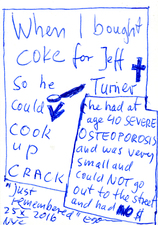 When I bought
COKE for Jeff
Turner
So he
Could
COOK
up
CRACK
She had at
age 40 SEVERE
OSTEOPOROSIS
and was very
small and
could NOT go
out to the street
and had NO $
"Just
remembered"
25 X 2016
NYC